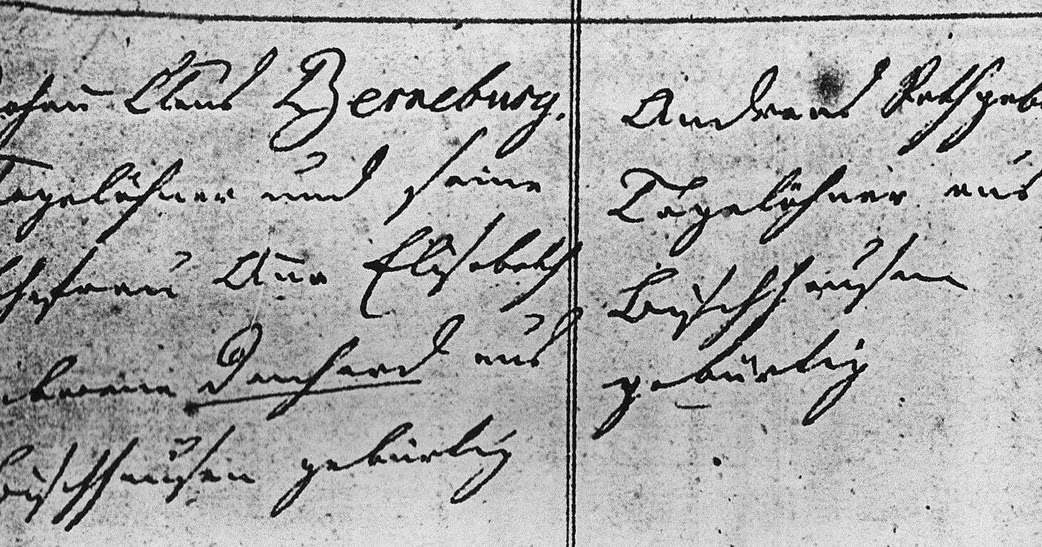 Johann Claus Berneburg.
Tagelöhner und seine
Ehefrau Anna Elisabeth
geborene Denhard aus
Bischhausen gebürtig
Andreas Rethgeb
Tagelöhner aus
Bischhausen
gebürtig